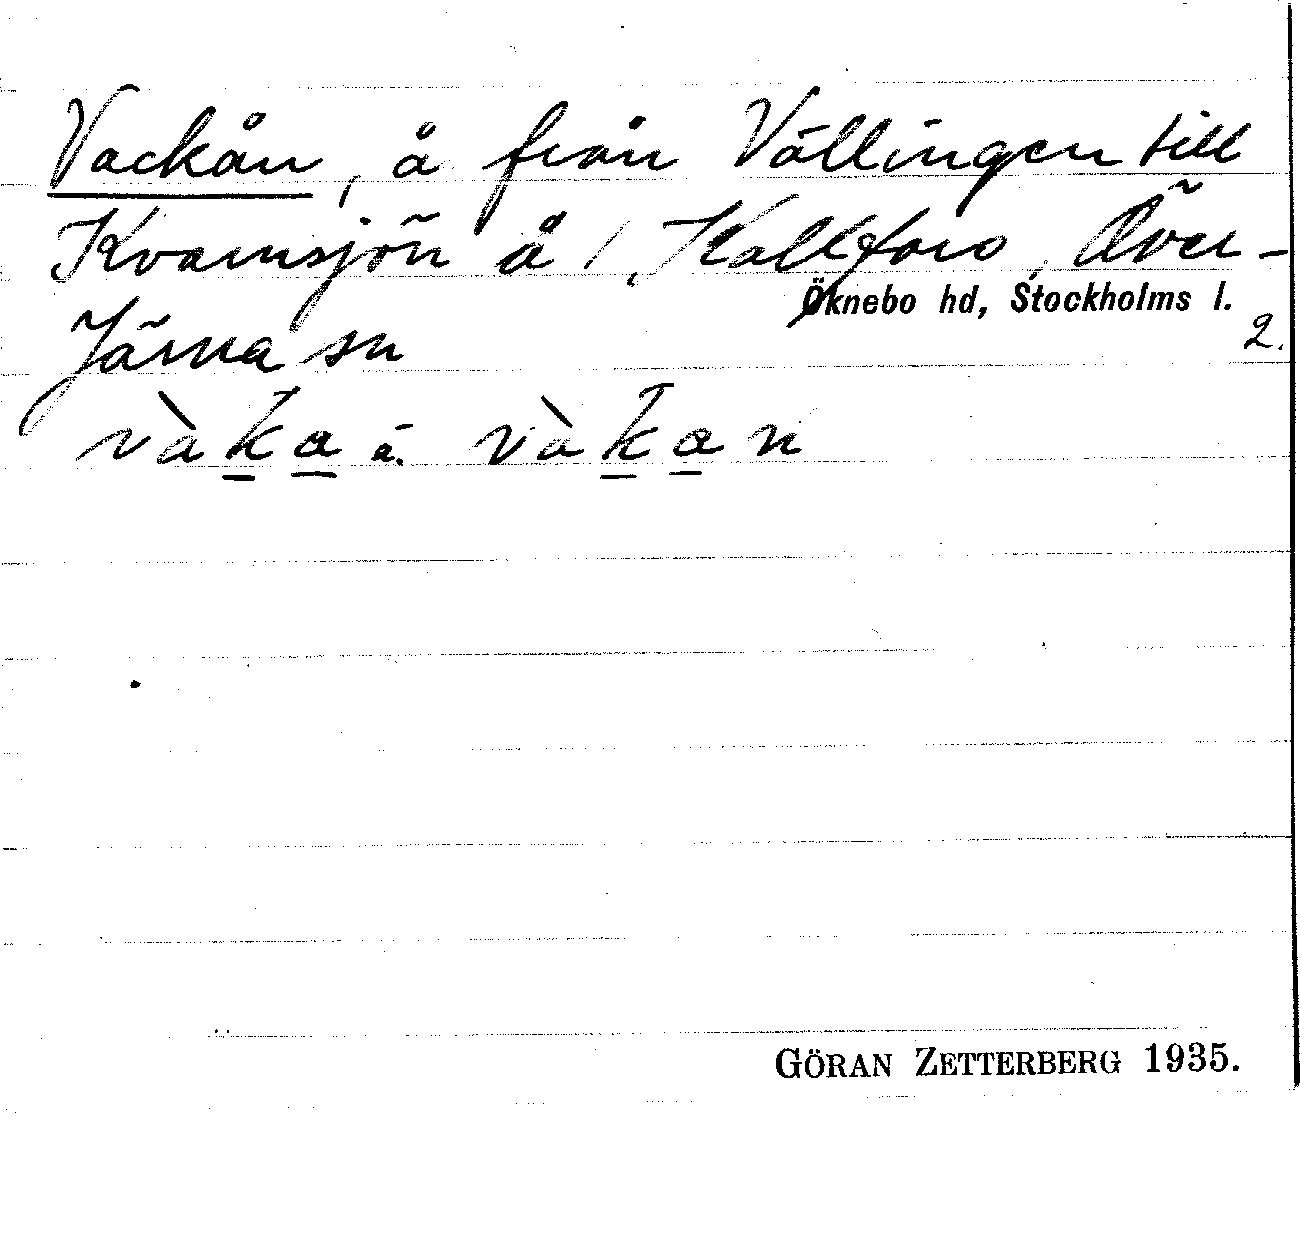 Vackån, å från Vällingen till
Kvarnsjön å /, Kallfors, Över-
Öknebo hd, Stockholms l.
Järna sn 2.
vàka å. vàkan
GÖRAN ZETTERBERG 1935.